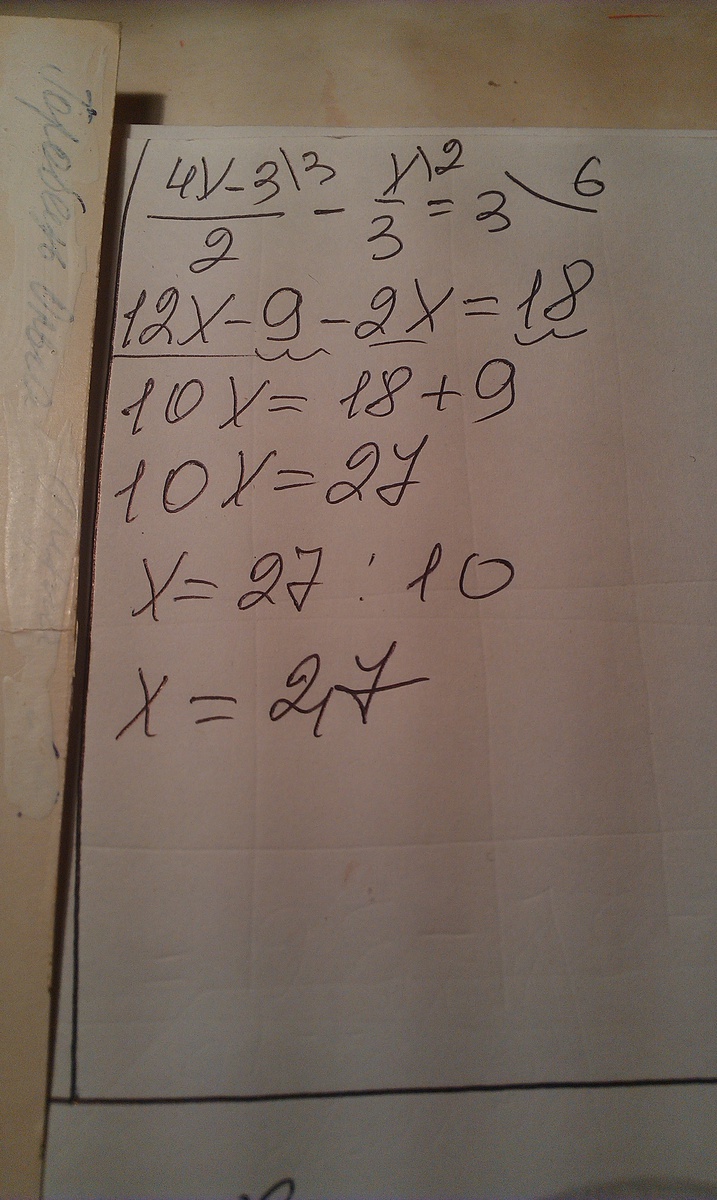 (4x-3\3)/2 - (x\2)/3 = 3\6
12x-9-2x=18
10x=18+9
10x=27
x=27:10
x=2,7